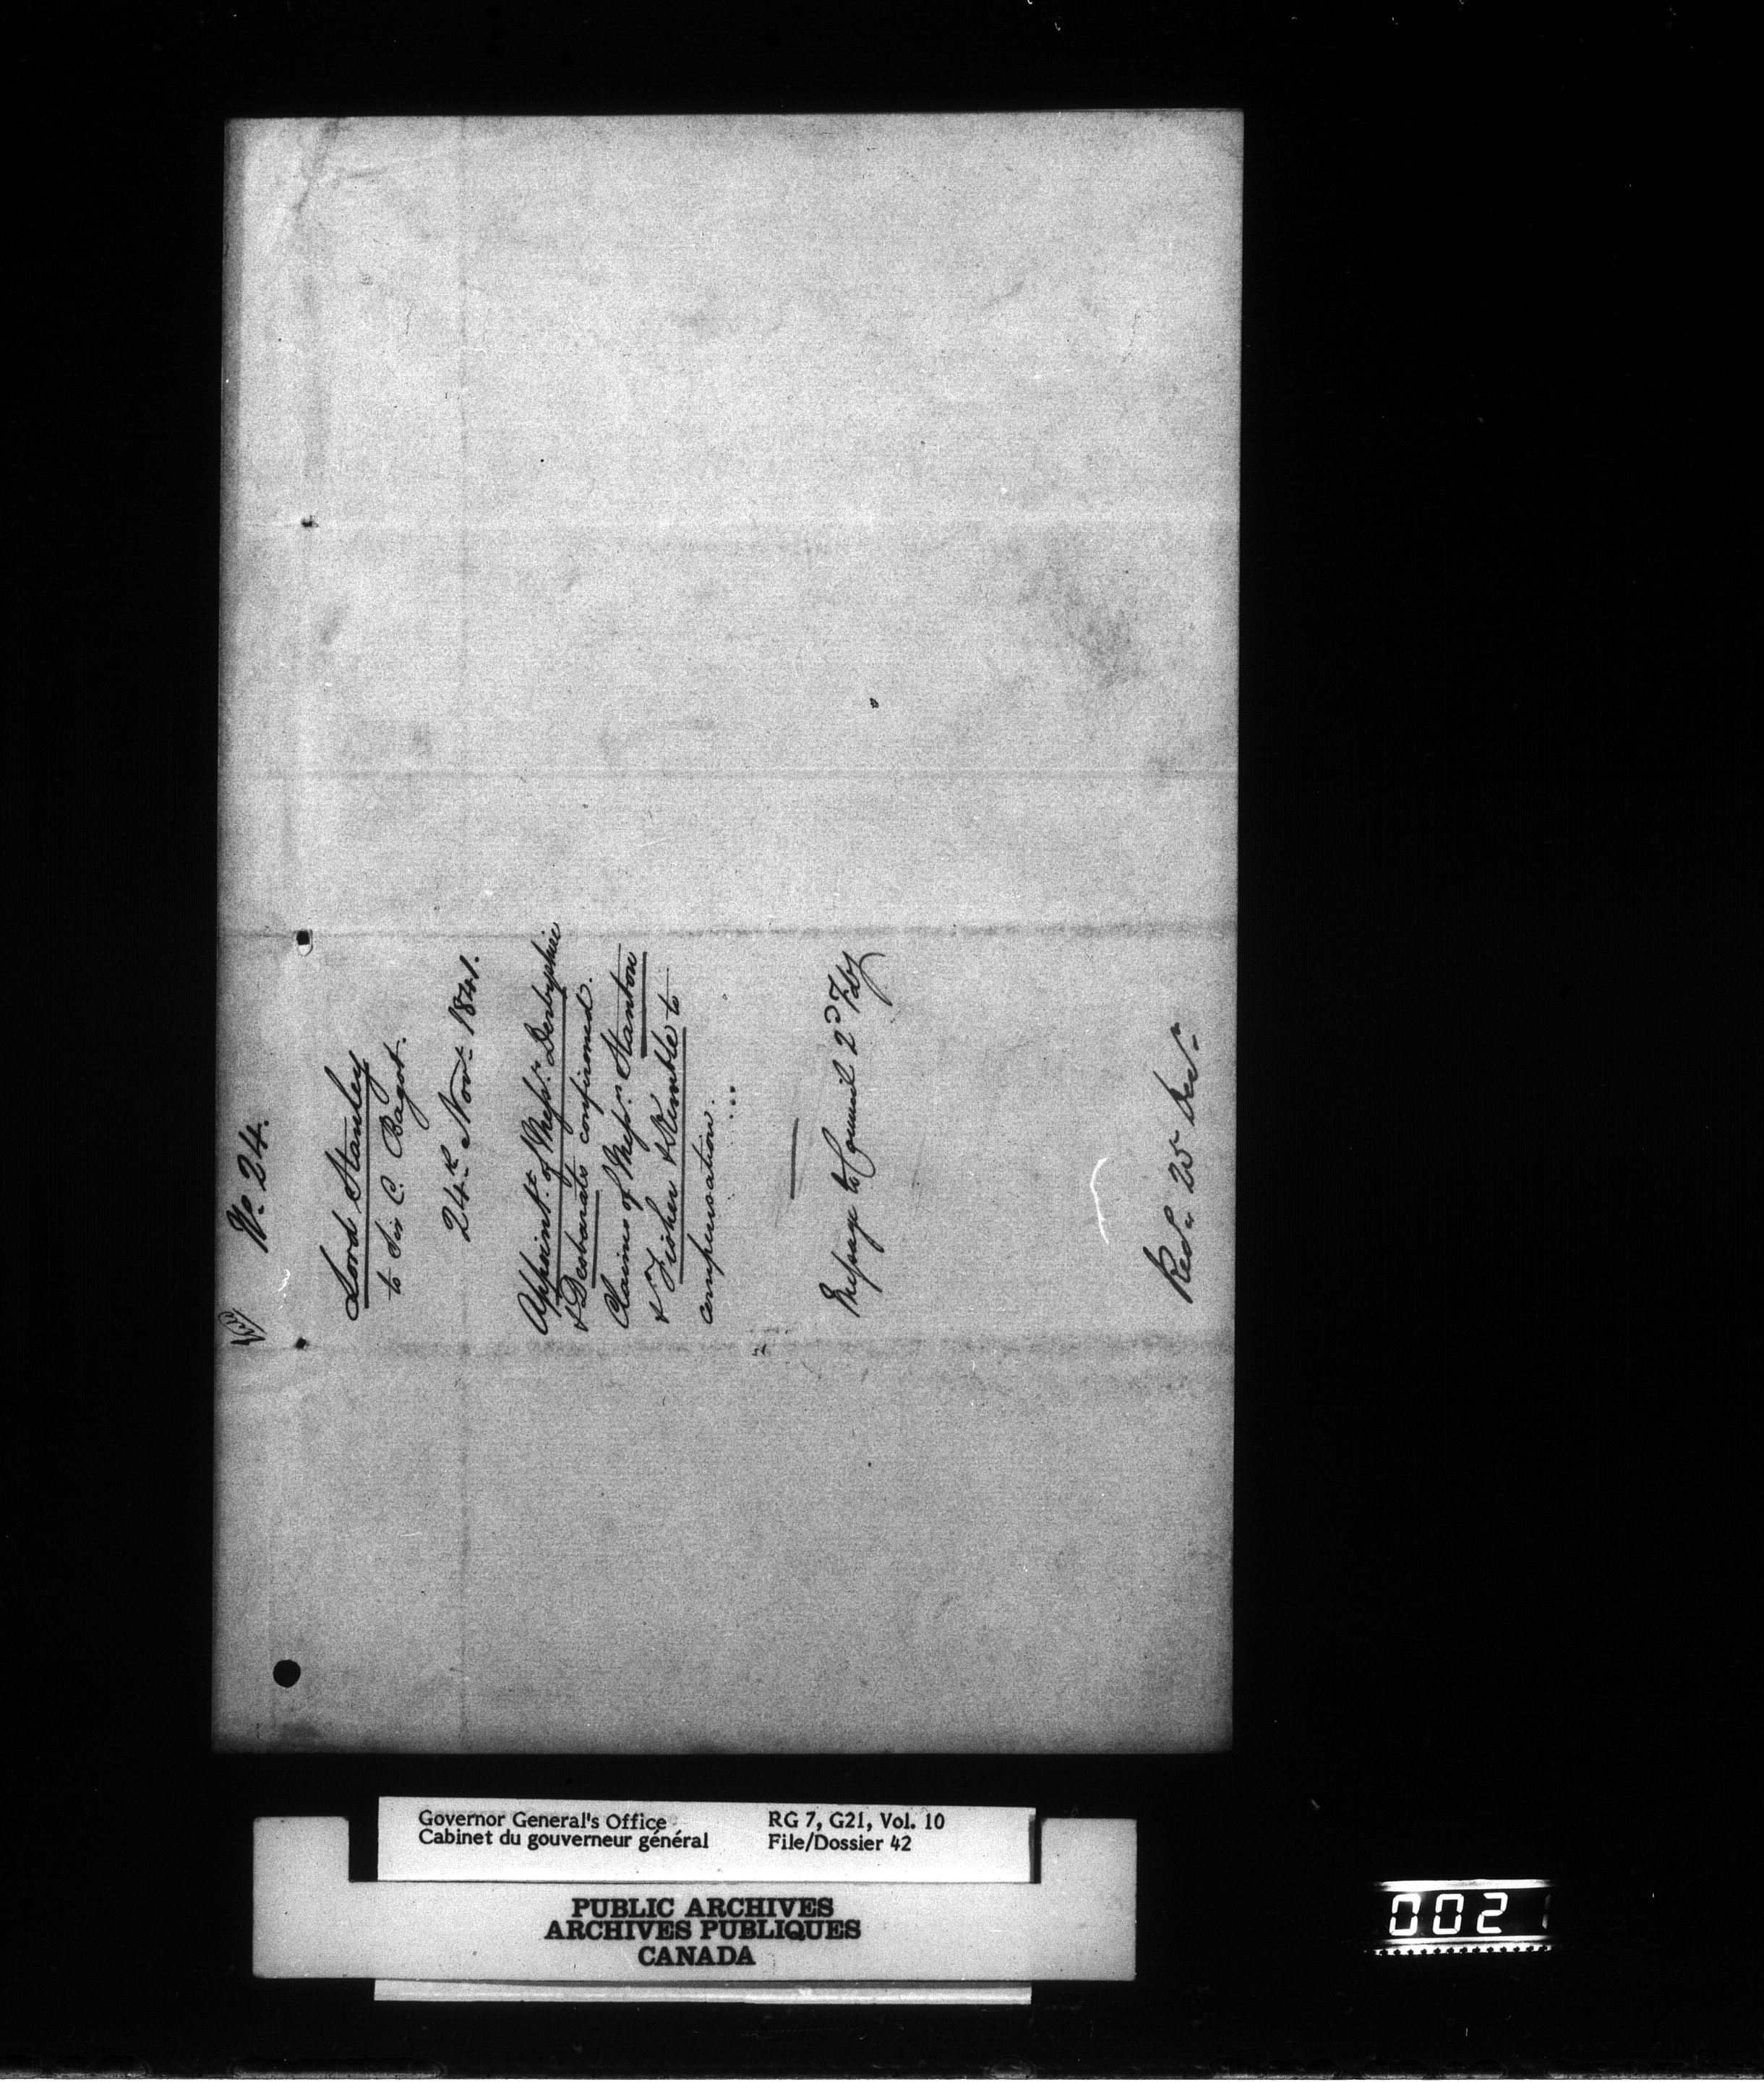 No 24.
Lord Stanley
to Sir C. Bagot.
24th Novr 1841.
Appointt. of Messrs. Derbyshire
& Desbarats confirmed.
Claims of Messrs Stanton
& Fisher & Kemble to
compensation.
Message to Council 2d Feby
Recd. 25 Decr.
Governor General's Office
Cabinet du gouverneur général
RG 7, G21, Vol. 10
File/Dossier 42
PUBLIC ARCHIVES
ARCHIVES PUBLIQUES
CANADA
0021